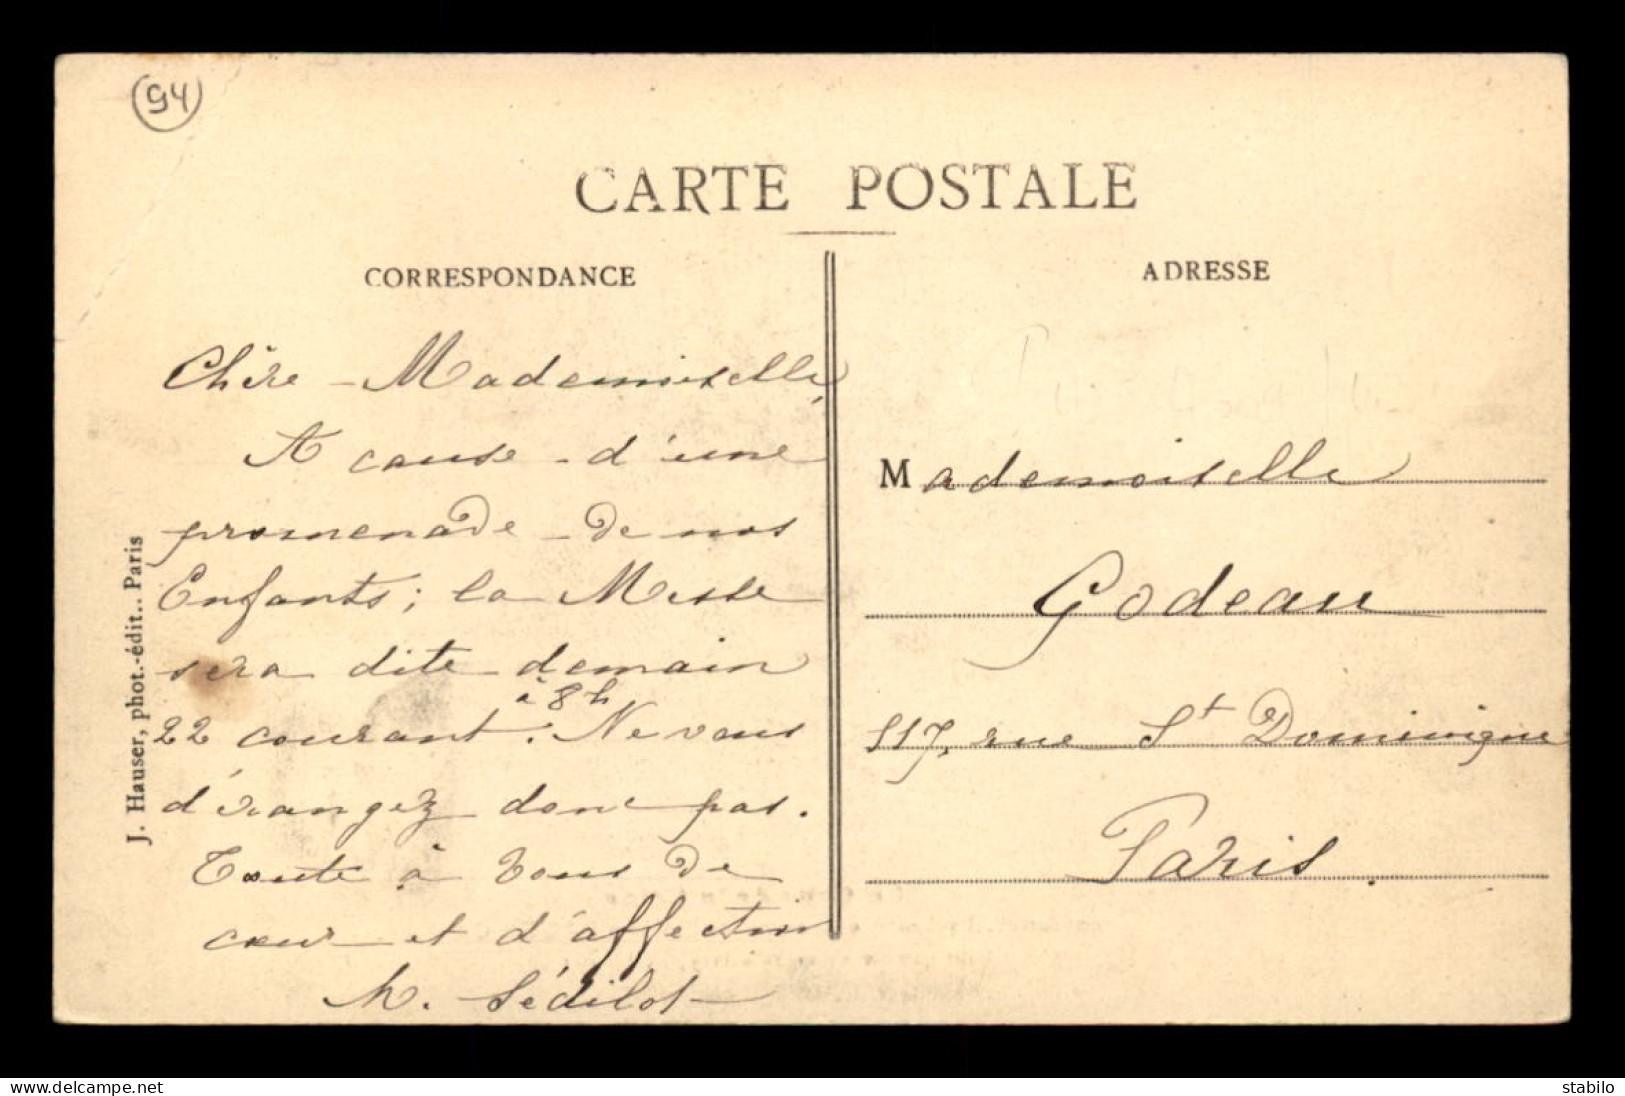 94
CARTE POSTALE
CORRESPONDANCE
Chère Mademoiselle,
A cause d'une
promenade de nos
Enfants; la Messe
sera dite demain
à 8h
22 courant. Ne vous
dérangez donc pas.
Toute à vous de
cœur et d'affection
M. Sédilot
J. Hauser, phot.-édit.. Paris
ADRESSE
Mademoiselle
Godeau
117, rue St Dominique
Paris.
www.delcampe.net
stabilo